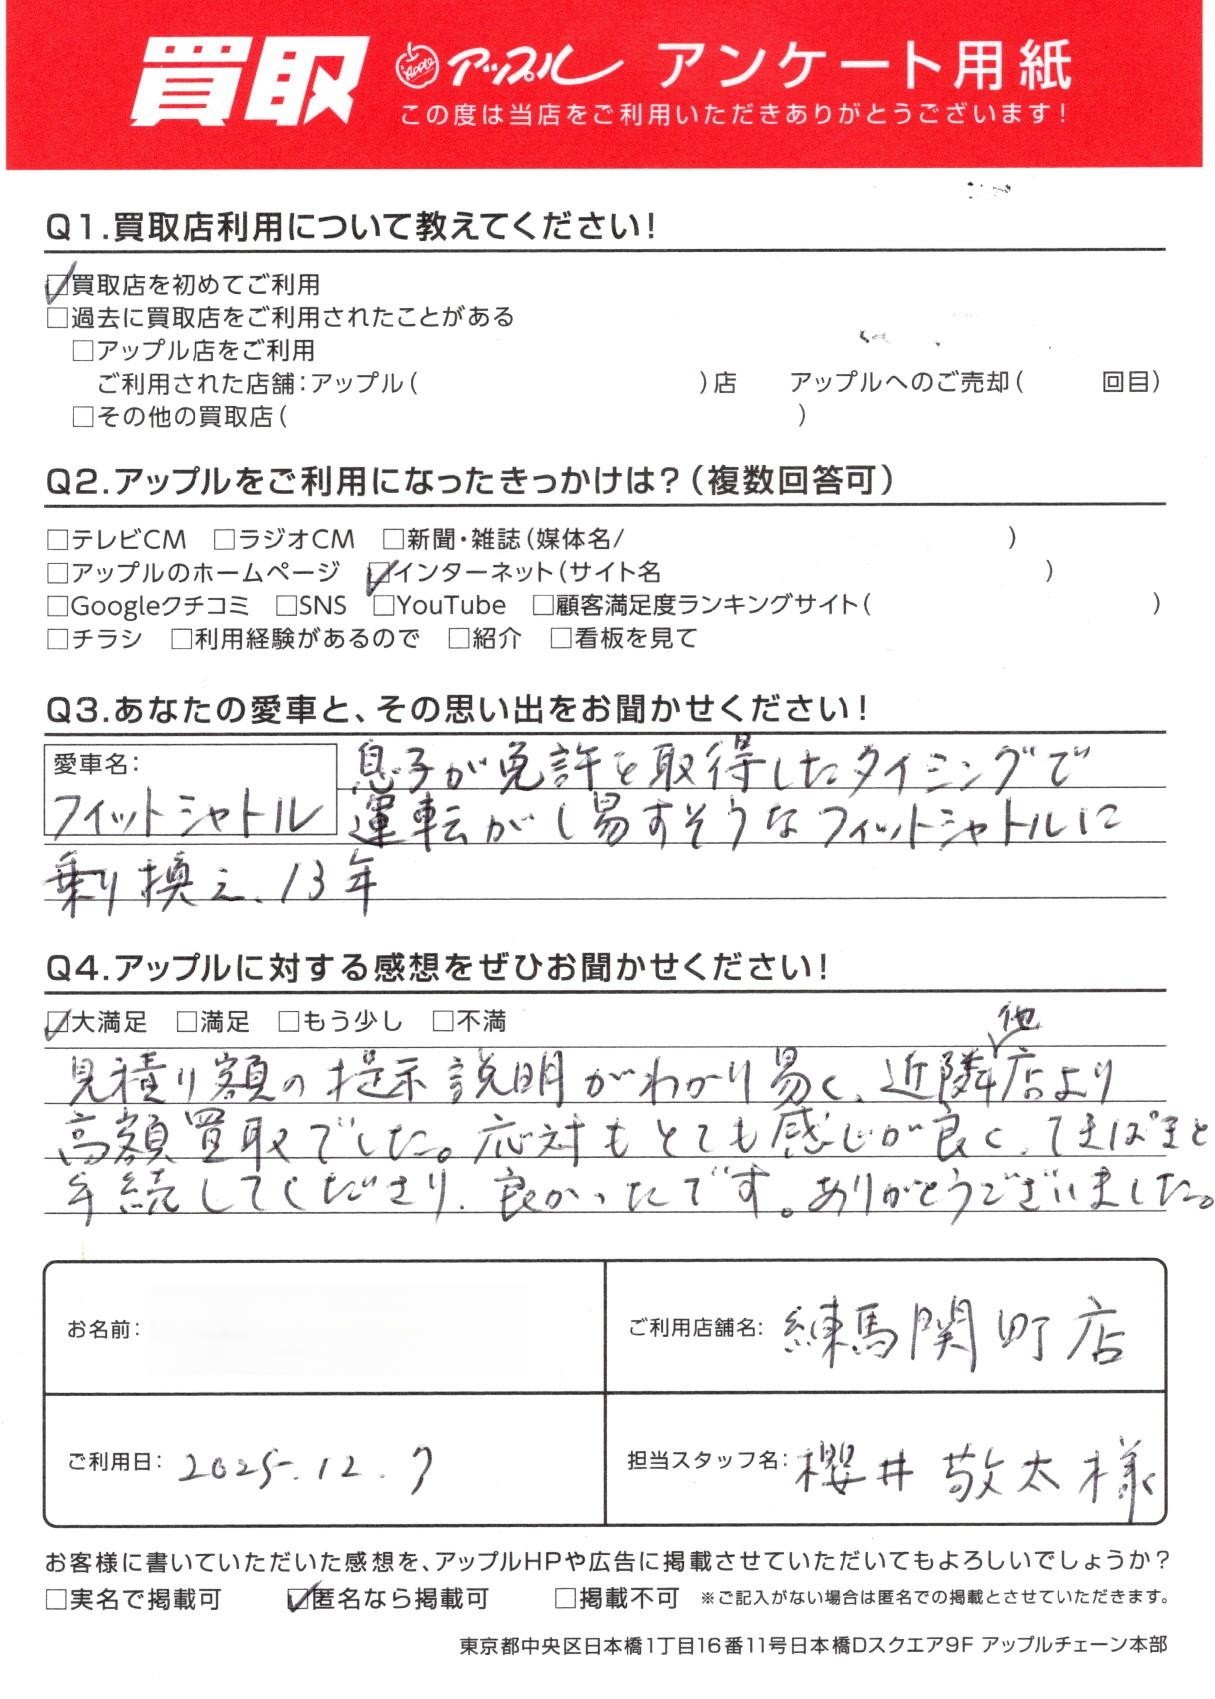 買取 Apple アップル アンケート用紙
この度は当店をご利用いただきありがとうございます!
Q1.買取店利用について教えてください!
☑買取店を初めてご利用
□過去に買取店をご利用されたことがある
□アップル店をご利用
ご利用された店舗:アップル( )店 アップルへのご売却( 回目)
□その他の買取店( )
Q2.アップルをご利用になったきっかけは?(複数回答可)
□テレビCM □ラジオCM □新聞・雑誌(媒体名/ )
□アップルのホームページ ☑インターネット(サイト名 )
□Googleクチコミ □SNS □YouTube □顧客満足度ランキングサイト( )
□チラシ □利用経験があるので □紹介 □看板を見て
Q3.あなたの愛車と、その思い出をお聞かせください!
愛車名:
フィットシャトル
息子が免許を取得したタイミングで
運転がし易すそうなフィットシャトルに
乗り換え、13年
Q4.アップルに対する感想をぜひお聞かせください!
☑大満足 □満足 □もう少し □不満
見積り額の提示説明がわかり易く、近隣他店より
高額買取でした。応対もとても感じが良く、てきぱきと
手続してくださり、良かったです。ありがとうございました。
お名前:
ご利用店舗名: 練馬関町店
ご利用日: 2025.12.7
担当スタッフ名: 櫻井敬太様
お客様に書いていただいた感想を、アップルHPや広告に掲載させていただいてもよろしいでしょうか?
□実名で掲載可 ☑匿名なら掲載可 □掲載不可 ※ご記入がない場合は匿名での掲載とさせていただきます。
東京都中央区日本橋1丁目16番11号日本橋Dスクエア9F アップルチェーン本部